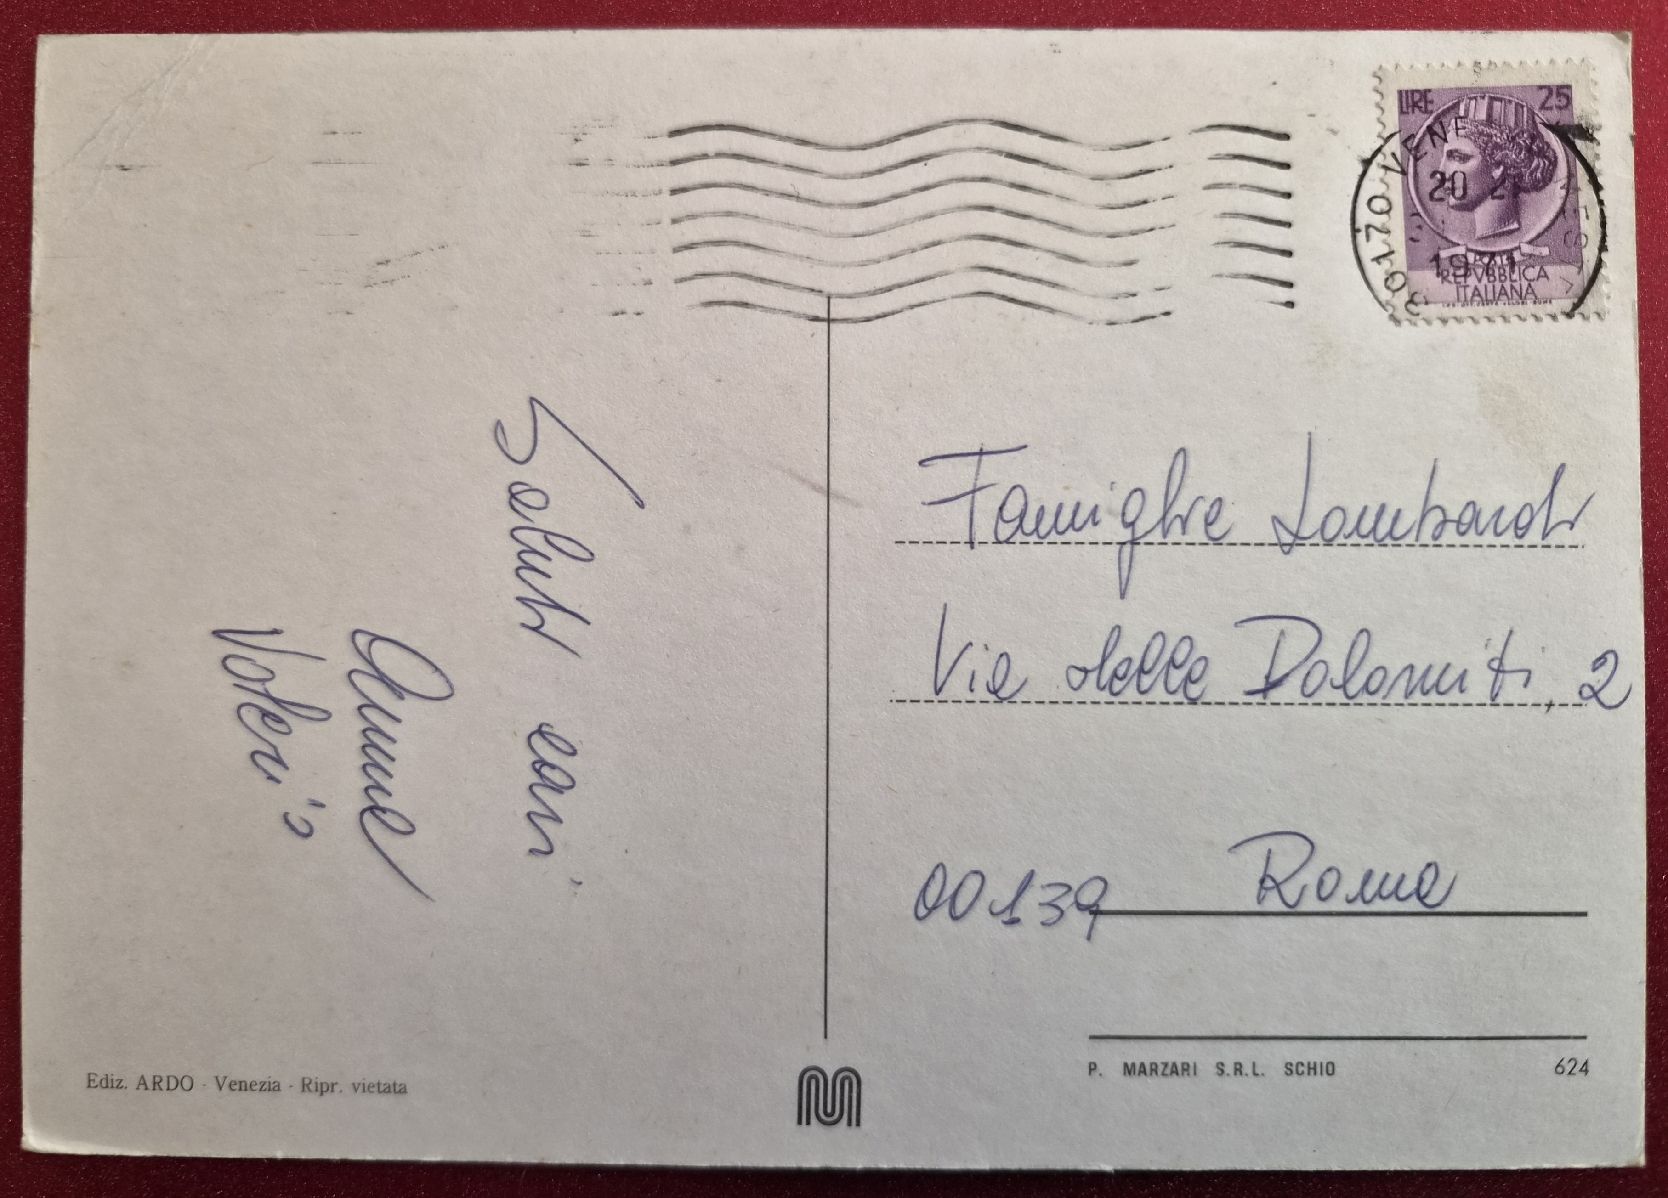 LIRE 25
30170 VENE
20 21
1971
REPVBBLICA
ITALIANA
Saluti cari
Famiglia Lombardi
Via delle Dolomiti, 2
00139 Roma
Ediz. ARDO - Venezia - Ripr. vietata
P. MARZARI S.R.L. SCHIO
624